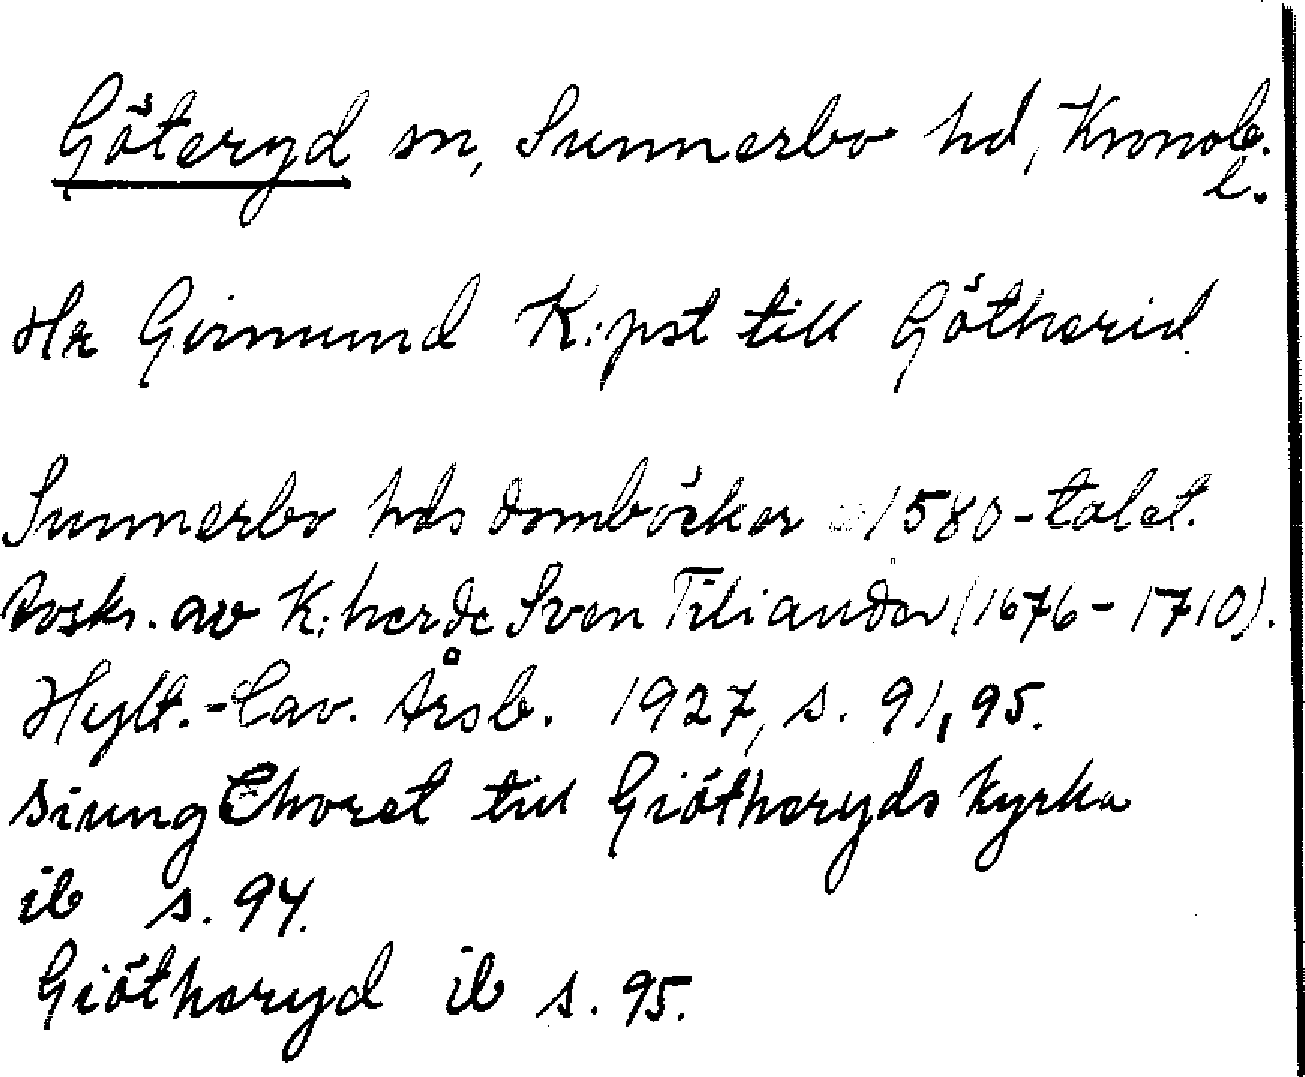 Göteryd sn, Sunnerbo hd, Kronob.
l.
Hr Girmund K:pst till Götherid
Sunnerbo hds domböcker 1580-talet.
Avskr. av K:herde Sven Tiliander (1676-1710).
Hylt.-Cav. Årsb. 1927, s. 91, 95.
siung Choret till Giötheryds kyrka
ib s. 94.
Giötheryd ib s. 95.